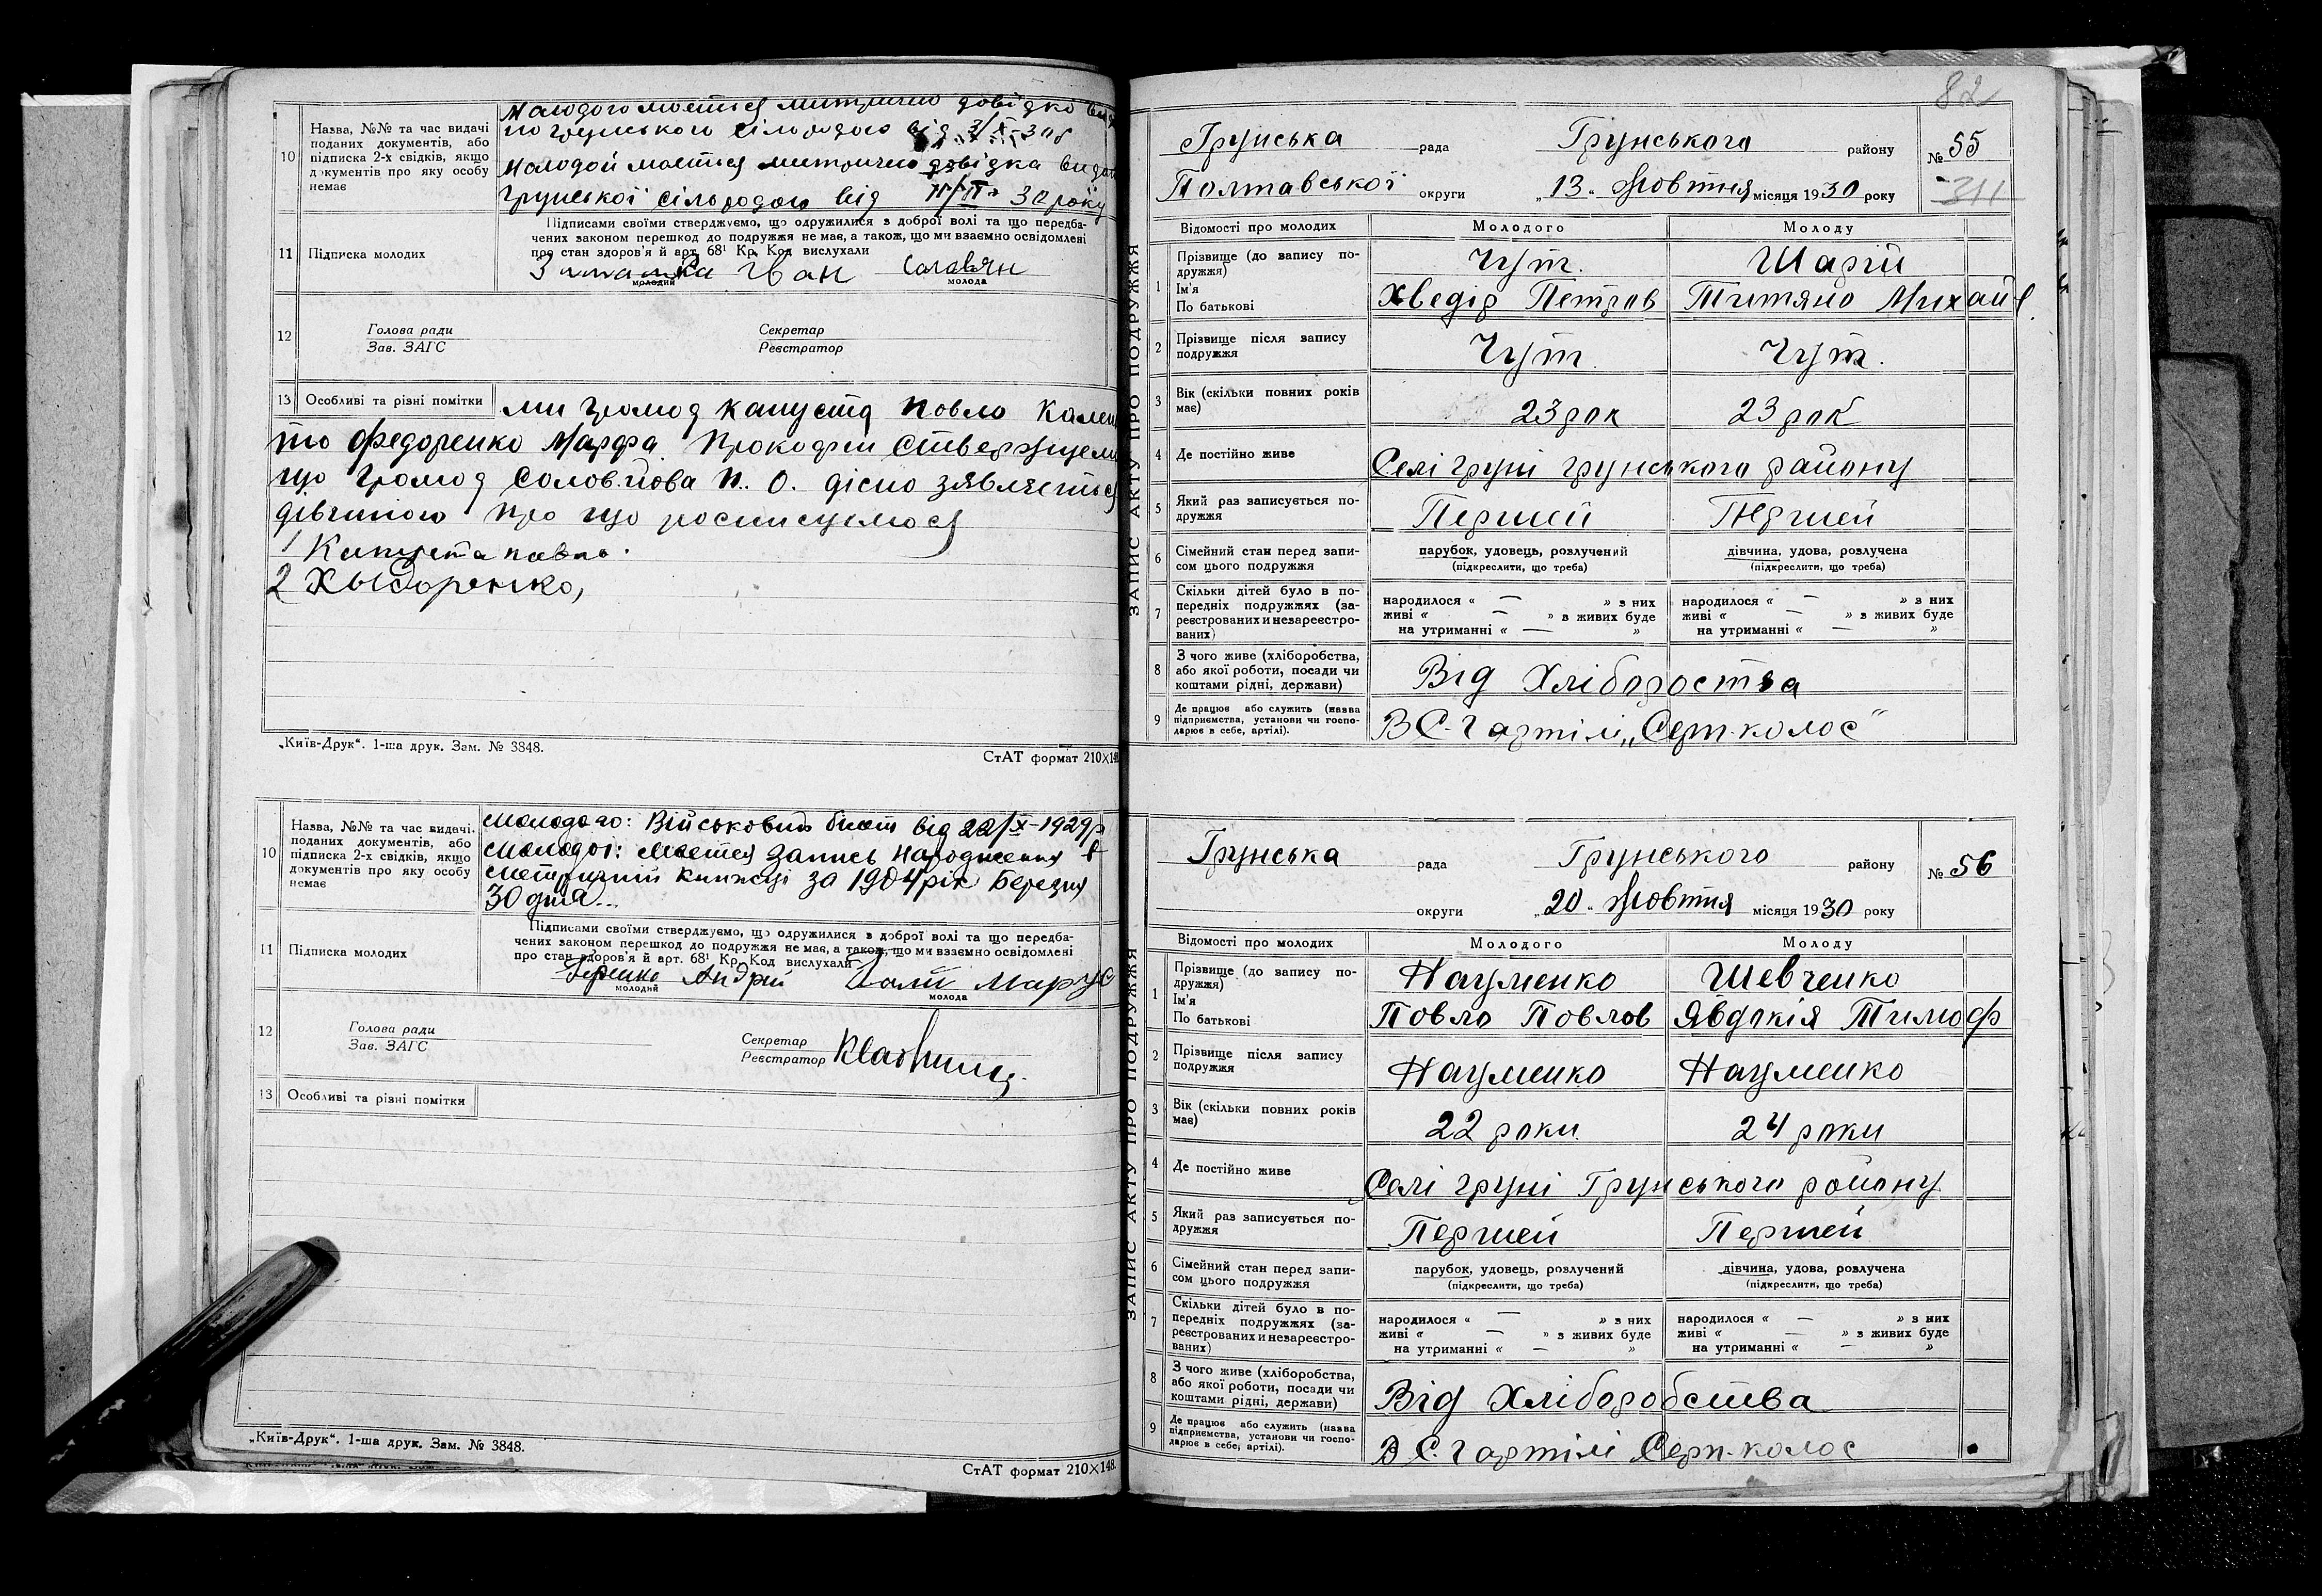 10 Назва, №№ та час видачі
поданих документів, або
підписка 2-х свідків, якщо
документів про яку особу
немає
Молодого мается митрично довідко
по грунського сільродою від 3/X-30б
Молодой мается митрично довідка видан
грунської сільродою від 30 року
11 Підписка молодих
Підписами своїми стверджуємо, що одружилися з доброї волі та що передба-
чених законом перешкод до подружжя не має, а також, що ми взаємно освідомлені
про стан здоров'я й арт. 68¹ Кр. Код вислухали
Іван
молодий молода
12 Голова ради Секретар
Зав. ЗАГС Реєстратор
13 Особливі та різні помітки
ми громод капуста Повло
то Федоренко Марфа Прокофіи
що громод Соловйова П. О. дісно зявляеться
дівчиною про що росписуємося
1 Капуста павло.
2 Хыдоренко,
„Київ-Друк“. 1-ша друк. Зам. № 3848.
СтАТ формат 210×148
10 Назва, №№ та час видачі
поданих документів, або
підписка 2-х свідків, якщо
документів про яку особу
немає
молодого: Військовий билет від 22/X-1929р
молодої: мается запись народження в
метричній книжці за 1904 рік Березня
30 дня..
11 Підписка молодих
Підписами своїми стверджуємо, що одружилися з доброї волі та що передба-
чених законом перешкод до подружжя не має, а також, що ми взаємно освідомлені
про стан здоров'я й арт. 68¹ Кр. Код вислухали
Андрій
молодий молода
12 Голова ради Секретар
Зав. ЗАГС Реєстратор
13 Особливі та різні помітки
„Київ-Друк“. 1-ша друк. Зам. № 3848.
СтАТ формат 210×148.
82
ЗАПИС АКТУ ПРО ПОДРУЖЖЯ
Грунська рада Грунського району № 55
Полтавської округи „13“ Жовтня місяця 1930 року 311
Відомості про молодих Молодого Молоду
1 Прізвище (до запису по-
дружжя)
Ім'я
По батькові
Чут. Шарій
Хведір Петров Титяно Михайл.
2 Прізвище після запису
подружжя
Чут. Чут.
3 Вік (скільки повних років
має)
23 рок 23 рок
4 Де постійно живе
Селі груні грунського району
5 Який раз записується по-
дружжя
Першей Першей
6 Сімейний стан перед запи-
сом цього подружжя
парубок, удовець, розлучений дівчина, удова, розлучена
(підкреслити, що треба) (підкреслити, що треба)
7 Скільки дітей було в по-
передніх подружжях (за-
реєстрованих и незареєстро-
ваних)
народилося « — » з них народилося « — » з них
живі « — » з живих буде живі « — » з живих буде
на утриманні « — » на утриманні « — »
8 З чого живе (хліборобства,
або якої роботи, посади чи
коштами рідні, держави)
Від Хлібороства
9 Де працює або служить (назва
підприємства, установи чи госпо-
дарює в себе, артілі).
В С. г артілі „Серп-колос“
ЗАПИС АКТУ ПРО ПОДРУЖЖЯ
Грунська рада Грунського району № 56
округи „20“ Жовтня місяця 1930 року
Відомості про молодих Молодого Молоду
1 Прізвище (до запису по-
дружжя)
Ім'я
По батькові
Науменко Шевченко
Повло Повлов Явдокія Тимоф
2 Прізвище після запису
подружжя
Науменко Науменко
3 Вік (скільки повних років
має)
22 роки 24 роки
4 Де постійно живе
Селі груні Грунського району
5 Який раз записується по-
дружжя
Першей Першей
6 Сімейний стан перед запи-
сом цього подружжя
парубок, удовець, розлучений дівчина, удова, розлучена
(підкреслити, що треба) (підкреслити, що треба)
7 Скільки дітей було в по-
передніх подружжях (за-
реєстрованих и незареєстро-
ваних)
народилося « — » з них народилося « — » з них
живі « — » з живих буде живі « — » з живих буде
на утриманні « — » на утриманні « — »
8 З чого живе (хліборобства,
або якої роботи, посади чи
коштами рідні, держави)
Від Хліборобства
9 Де працює або служить (назва
підприємства, установи чи госпо-
дарює в себе, артілі).
В С. г артілі Серп-колос